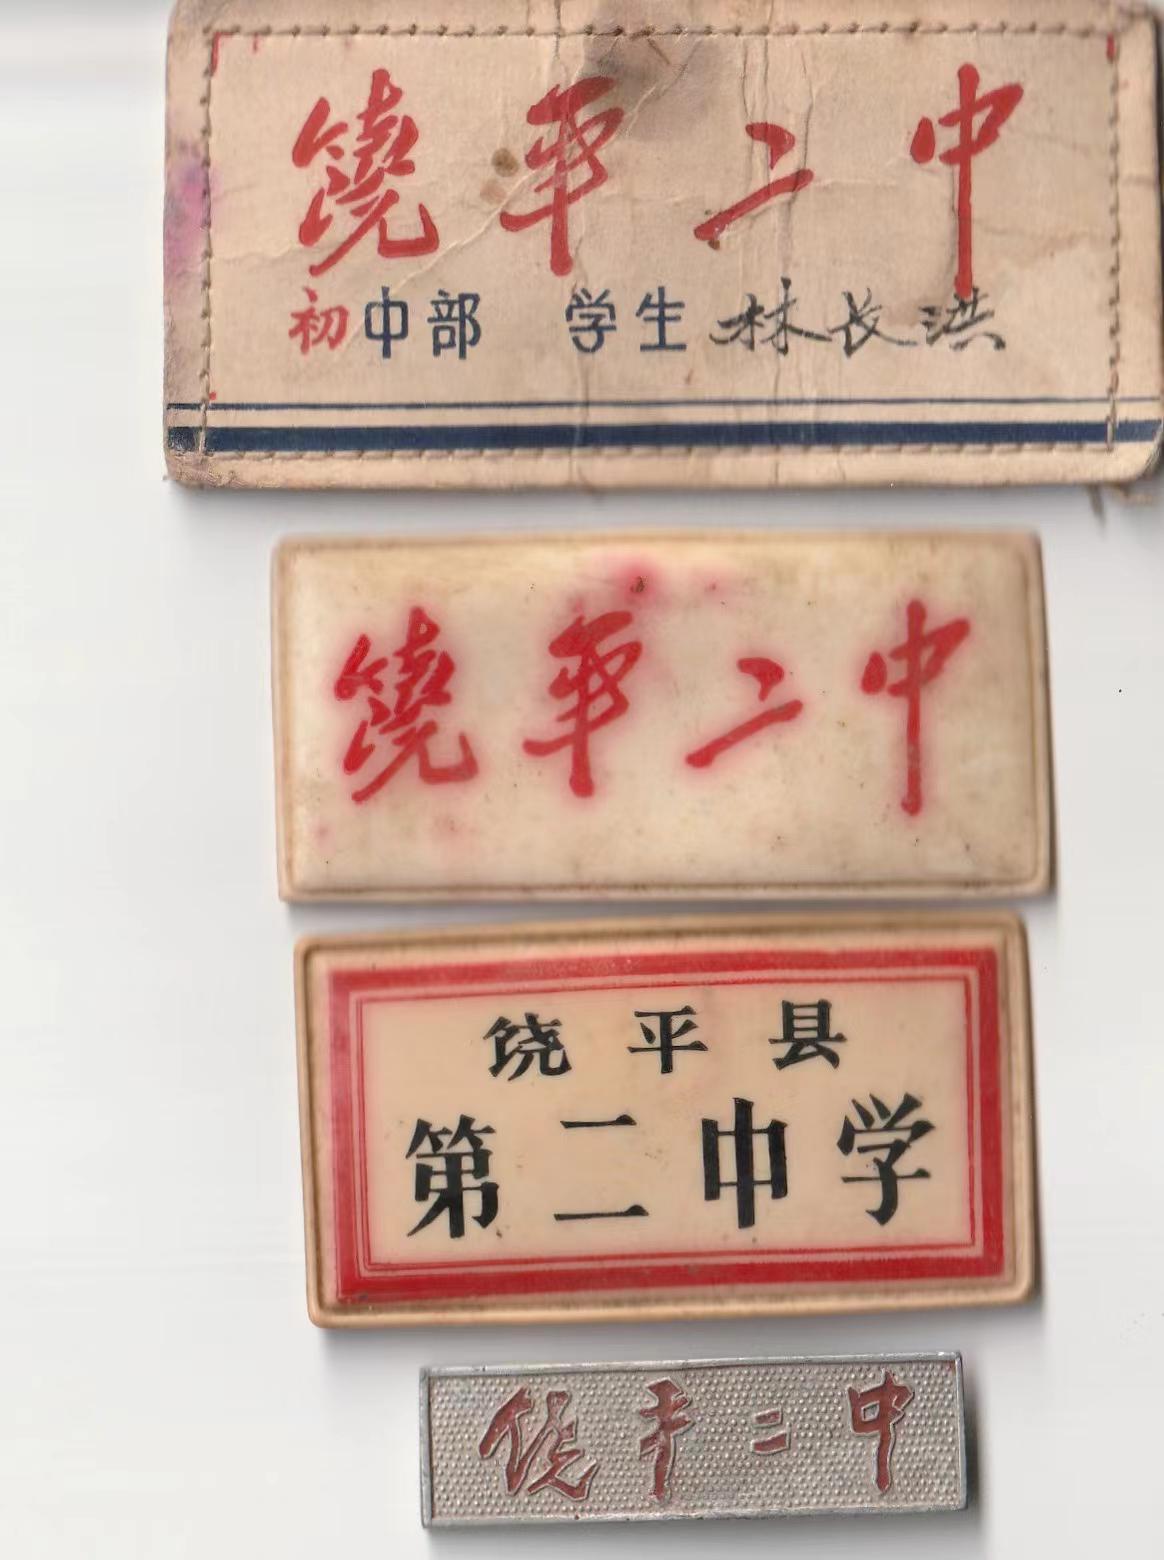 饒平二中
初中部 学生 林长洪
饒平二中
饶平县
第二中学
饶平二中